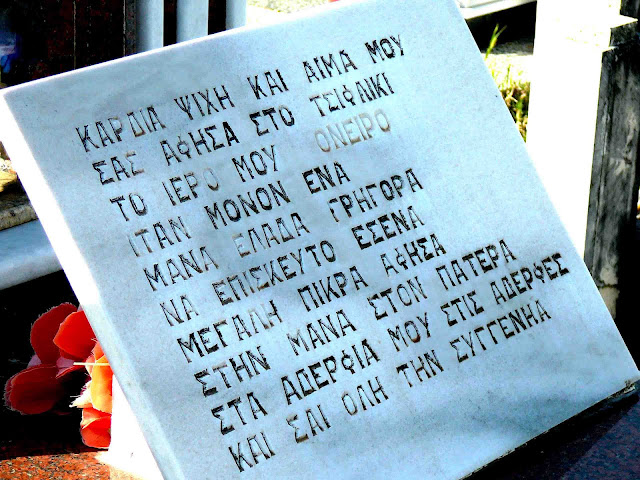 ΚΑΡΔΙΑ ΨΙΧΗ ΚΑΙ ΑΙΜΑ ΜΟΥ
ΣΑΣ ΑΦΗΣΑ ΣΤΟ ΤΣΙΦΛΙΚΙ
ΤΟ ΙΕΡΟ ΜΟΥ ΟΝΕΙΡΟ
ΙΤΑΝ ΜΟΝΟΝ ΕΝΑ
ΜΑΝΑ ΕΛΑΔΑ ΓΡΗΓΟΡΑ
ΝΑ ΕΠΙΣΚΕΥΤΟ ΕΣΕΝΑ
ΜΕΓΑΛΗ ΠΙΚΡΑ ΑΦΗΣΑ
ΣΤΗΝ ΜΑΝΑ ΣΤΟΝ ΠΑΤΕΡΑ
ΣΤΑ ΑΔΕΡΦΙΑ ΜΟΥ ΣΤΙΣ ΑΔΕΡΦΕΣ
ΚΑΙ ΣΑΙ ΟΛΗ ΤΗΝ ΣΥΓΓΕΝΗΑ